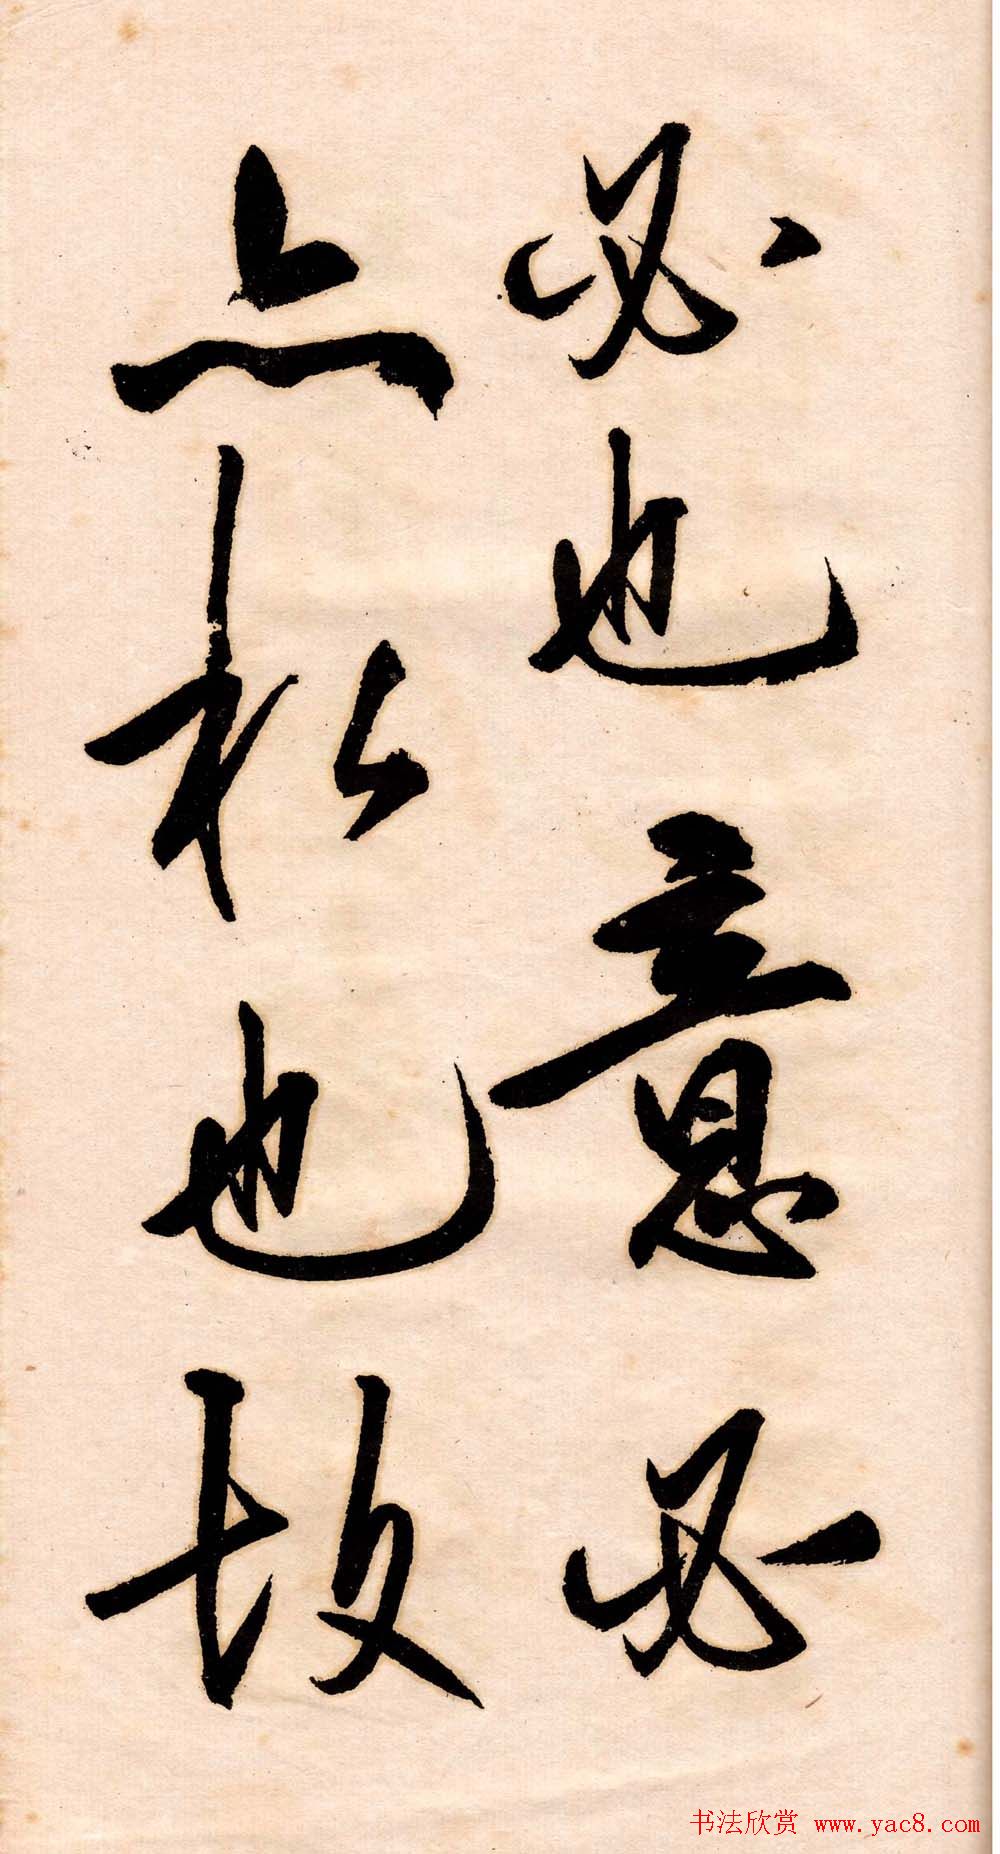 必也意必
亦私也故
书法欣赏 www.yac8.com